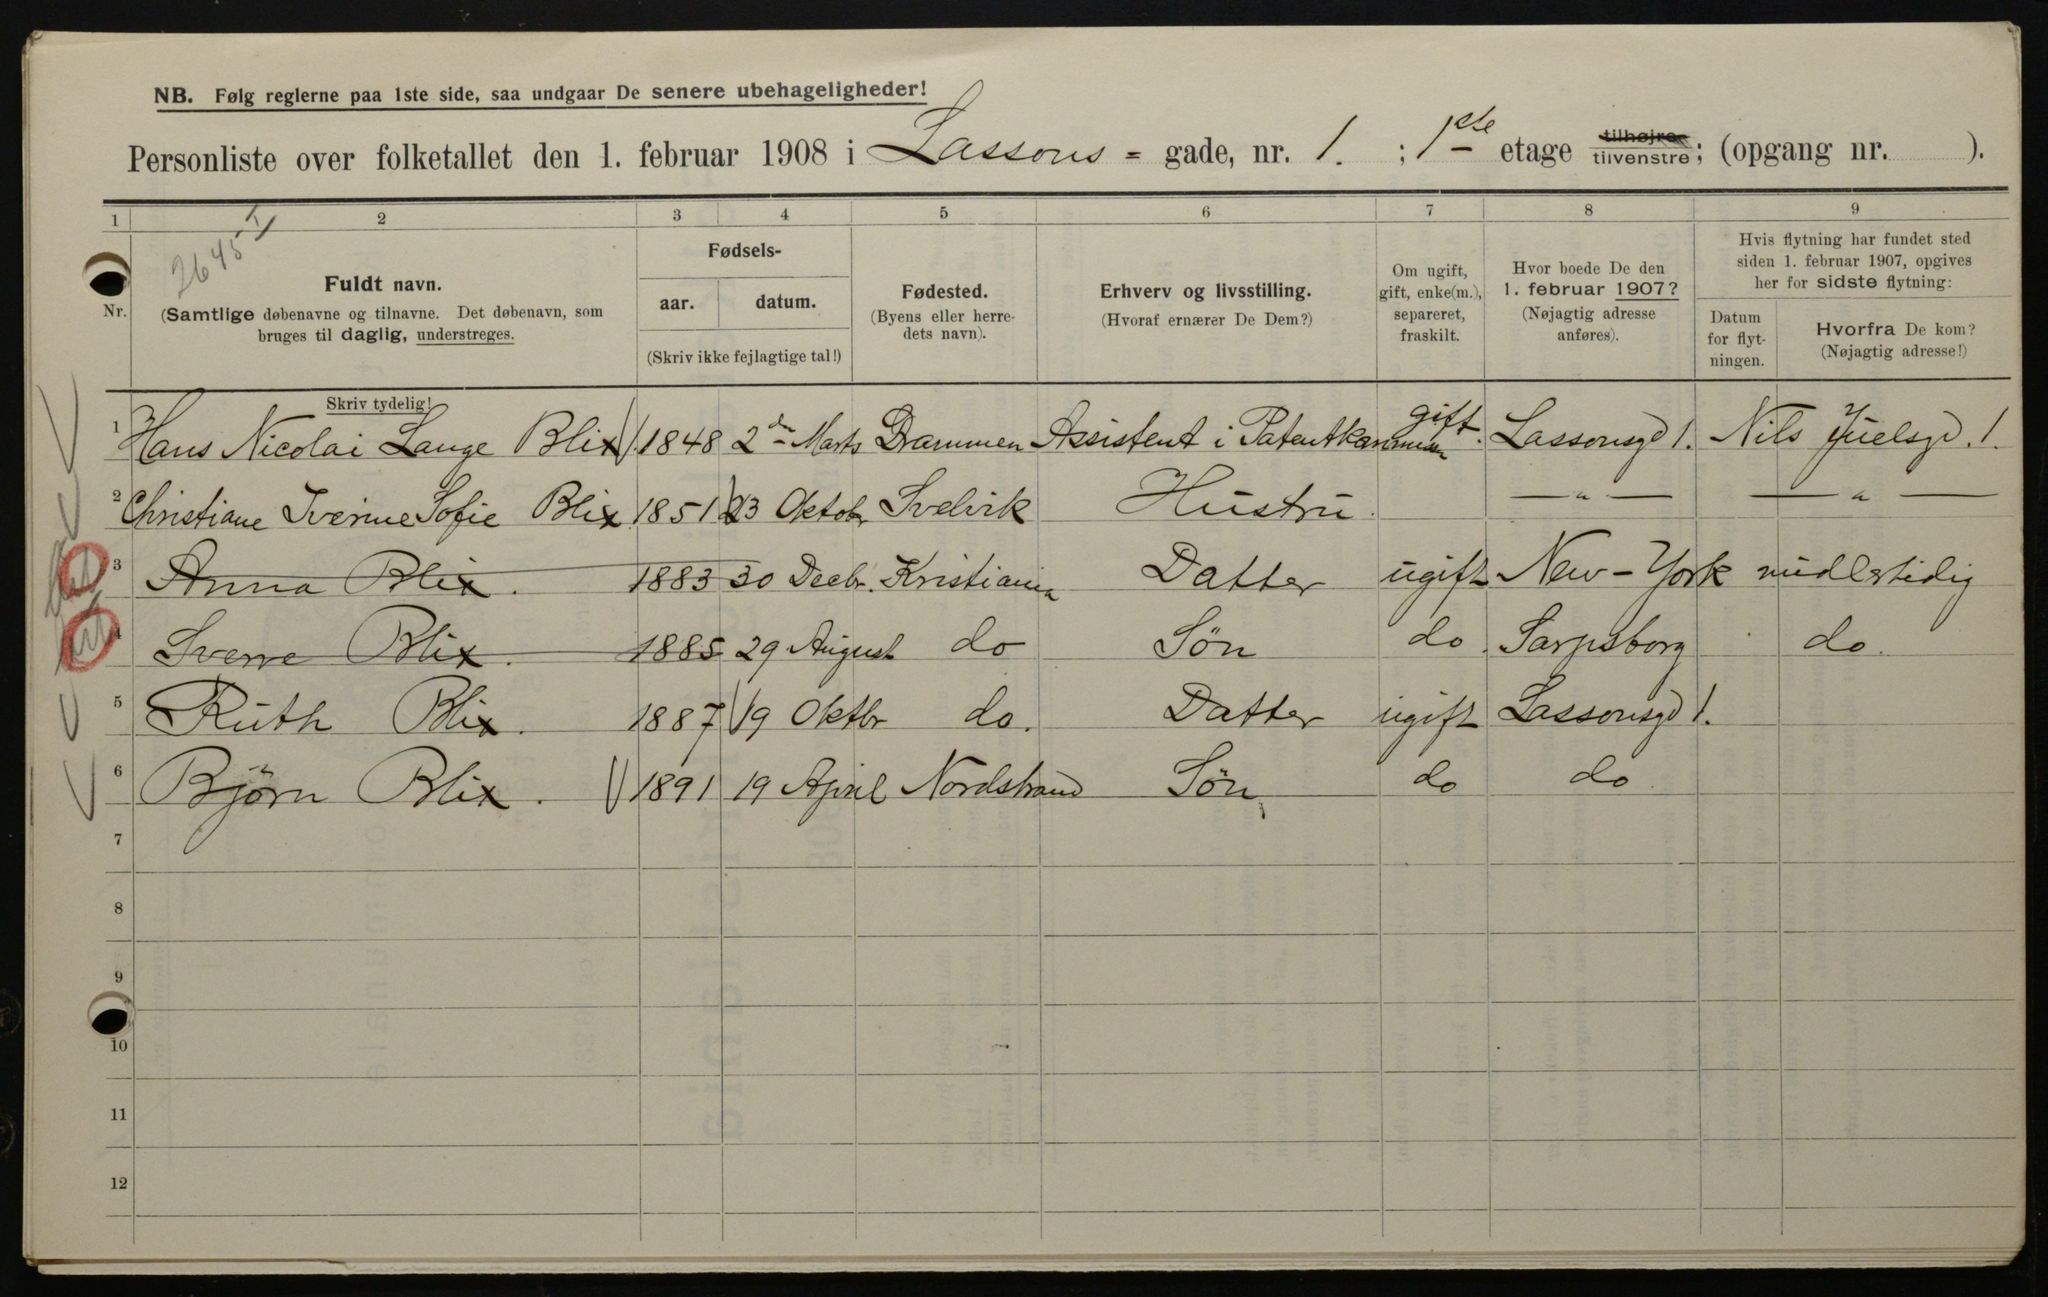 NB. Følg reglerne paa 1ste side, saa undgaar De senere ubehageligheder!
Personliste over folketallet den 1. februar 1908 i Lassons - gade, nr. 1. ; 1ste etage tilhøjre tilvenstre; (opgang nr. ).
1 2 3 4 5 6 7 8 9
2645
Nr.
Fuldt navn.
(Samtlige døbenavne og tilnavne. Det døbenavn, som
bruges til daglig, understreges.
Skriv tydelig!
Fødsels-
aar. datum.
(Skriv ikke fejlagtige tal!)
Fødested.
(Byens eller herre-
dets navn).
Erhverv og livsstilling.
(Hvoraf ernærer De Dem?)
Om ugift,
gift, enke(m.),
separeret,
fraskilt.
Hvor boede De den
1. februar 1907?
(Nøjagtig adresse
anføres).
Hvis flytning har fundet sted
siden 1. februar 1907, opgives
her for sidste flytning:
Datum
for flyt-
ningen.
Hvorfra De kom?
(Nøjagtig adresse!)
1 Hans Nicolai Lange Blix 1848 2den Marts Drammen Assistent i Patentkommission gift. Lassonsgd 1. Nils Juelsgd. 1.
2 Christiane Iverine Sofie Blix 1851 23 Oktobr Svelvik Hustru — " — — " —
3 Anna Blix. 1883 30 Decbr. Kristiania Datter ugift New-York midlertidig
4 Sverre Blix. 1885 29 August do Søn do Sarpsborg do.
5 Ruth Blix. 1887 19 Oktbr do. Datter ugift Lassonsgd 1.
6 Bjørn Blix. 1891 19 April Nordstrand Søn do do
7
8
9
10
11
12